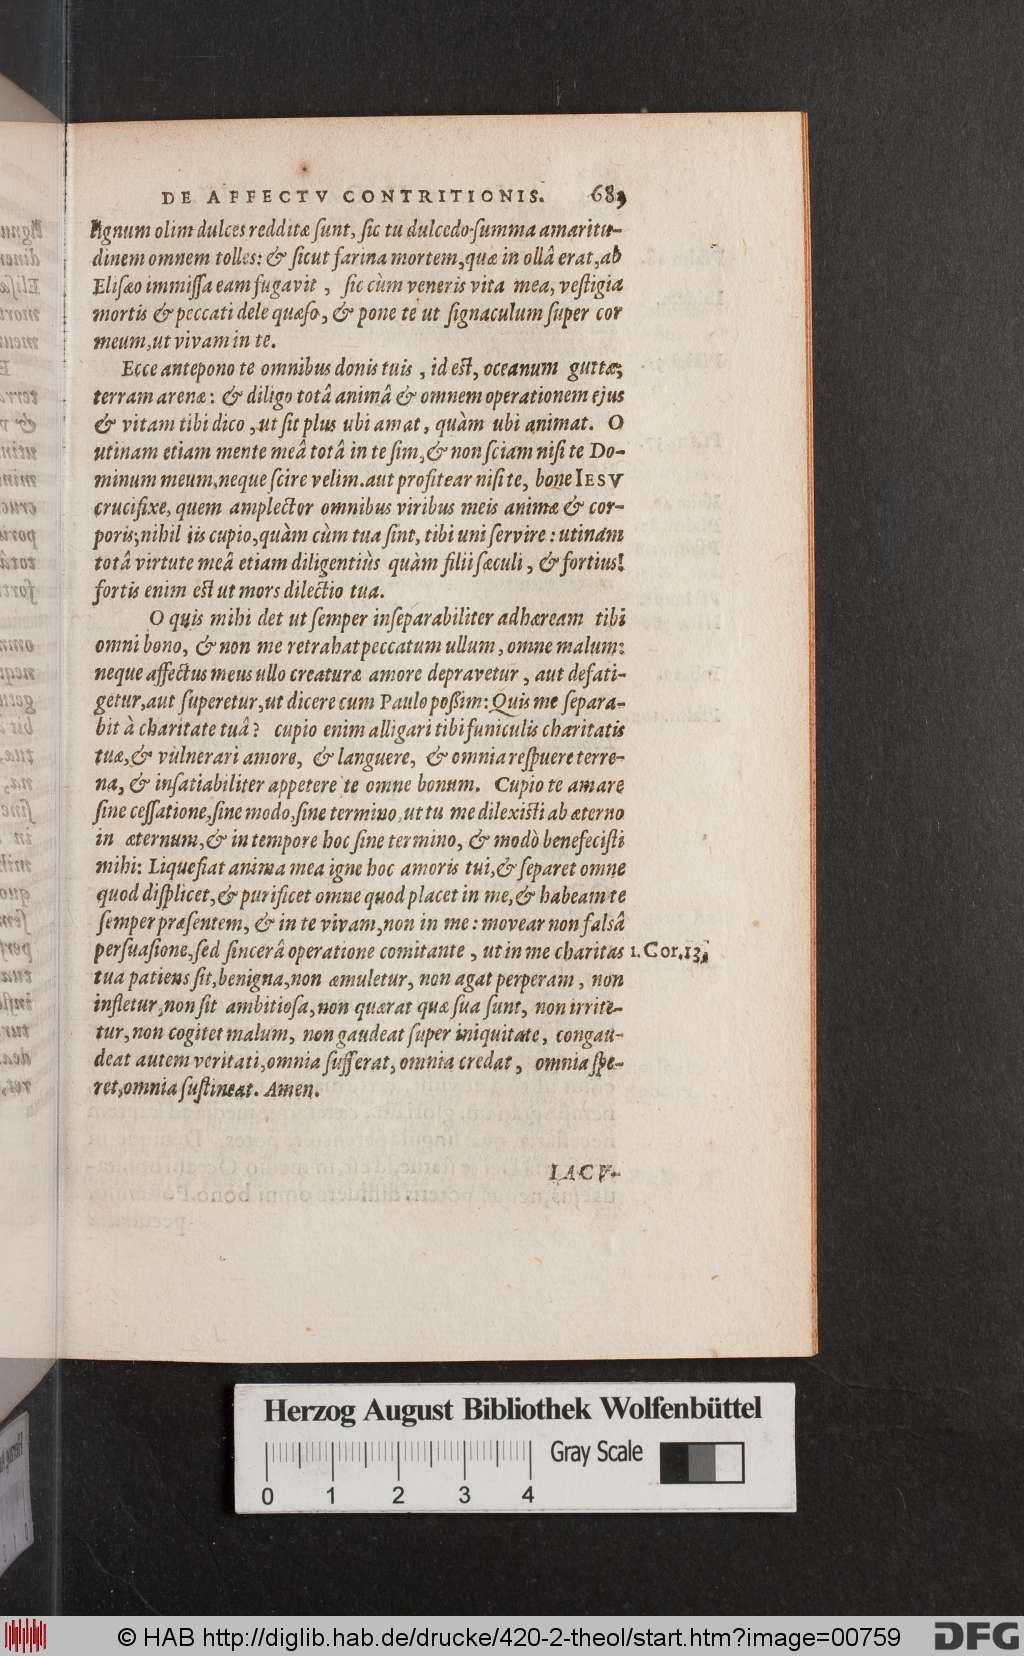 DE AFFECTV CONTRITIONIS. 683
lignum olim dulces redditæ sunt, sic tu dulcedo summa amaritu-
dinem omnem tolles: & sicut farina mortem, quæ in ollâ erat, ab
Elisæo immissa eam fugavit, sic cùm veneris vita mea, vestigia
mortis & peccati dele quæso, & pone te ut signaculum super cor
meum, ut vivam in te.
Ecce antepono te omnibus donis tuis, id est, oceanum guttæ,
terram arenæ: & diligo totâ animâ & omnem operationem ejus
& vitam tibi dico, ut sit plus ubi amat, quàm ubi animat. O
utinam etiam mente meâ totâ in te sim, & non sciam nisi te Do-
minum meum, neque scire velim. aut profitear nisi te, bone IESV
crucifixe, quem amplector omnibus viribus meis animæ & cor-
poris; nihil iis cupio, quàm cùm tua sint, tibi uni servire: utinam
totâ virtute meâ etiam diligentiùs quàm filii sæculi, & fortius!
fortis enim est ut mors dilectio tua.
O quis mihi det ut semper inseparabiliter adhæream tibi
omni bono, & non me retrahat peccatum ullum, omne malum:
neque affectus meus ullo creaturæ amore depravetur, aut defati-
getur, aut superetur, ut dicere cum Paulo possim: Quis me separa-
bit à charitate tuâ? cupio enim alligari tibi funiculis charitatis
tuæ, & vulnerari amore, & languere, & omnia respuere terre-
na, & insatiabiliter appetere te omne bonum. Cupio te amare
sine cessatione, sine modo, sine termino, ut tu me dilexisti ab æterno
in æternum, & in tempore hoc sine termino, & modò benefecisti
mihi: Liquefiat anima mea igne hoc amoris tui, & separet omne
quod displicet, & purificet omne quod placet in me, & habeam te
semper præsentem, & in te vivam, non in me: movear non falsâ
persuasione, sed sincerâ operatione comitante, ut in me charitas 1. Cor. 13.
tua patiens sit, benigna, non æmuletur, non agat perperam, non
infletur, non sit ambitiosa, non quærat quæ sua sunt, non irrite-
tur, non cogitet malum, non gaudeat super iniquitate, congau-
deat autem veritati, omnia sufferat, omnia credat, omnia spe-
ret, omnia sustineat. Amen.
IACV-
Herzog August Bibliothek Wolfenbüttel
Gray Scale
0 1 2 3 4
© HAB http://diglib.hab.de/drucke/420-2-theol/start.htm?image=00759
DFG